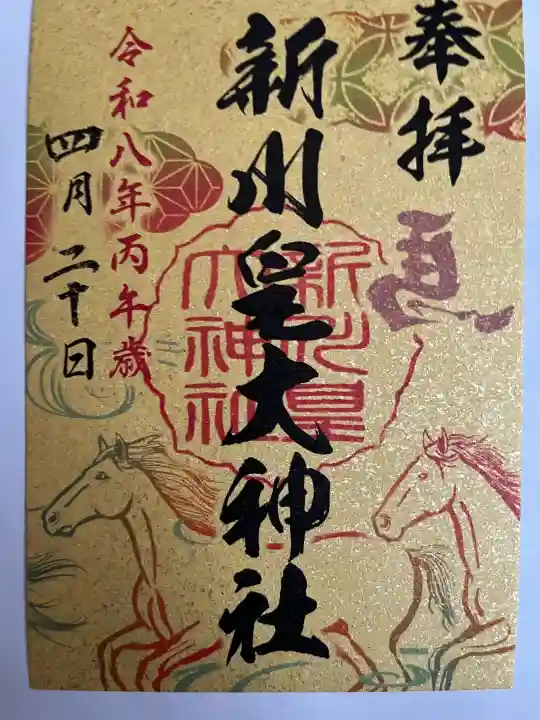 奉拝
馬
新川皇大神社
新川皇
大神社
令和八年丙午歳
四月二十日